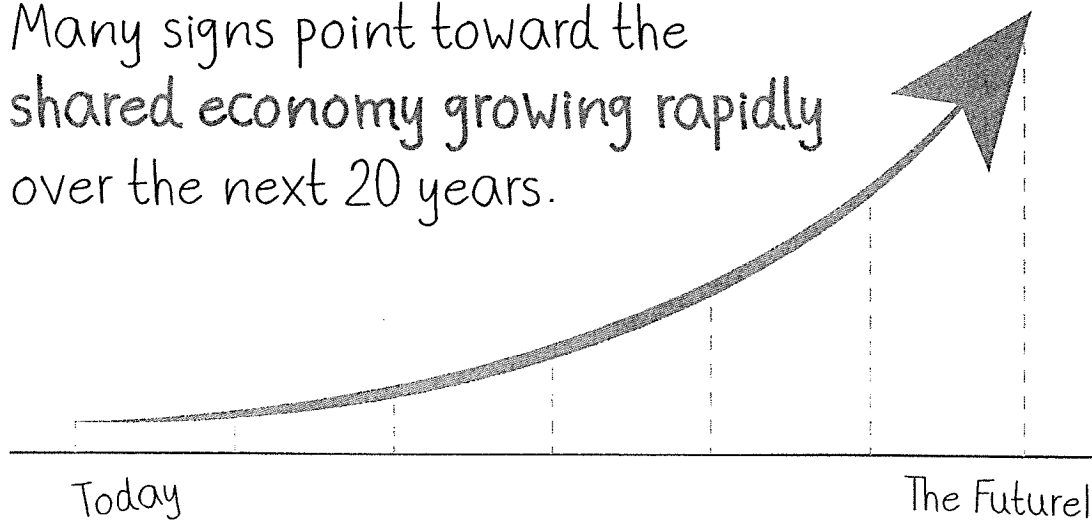 Many signs point toward the
shared economy growing rapidly
over the next 20 years.
Today
The Future!